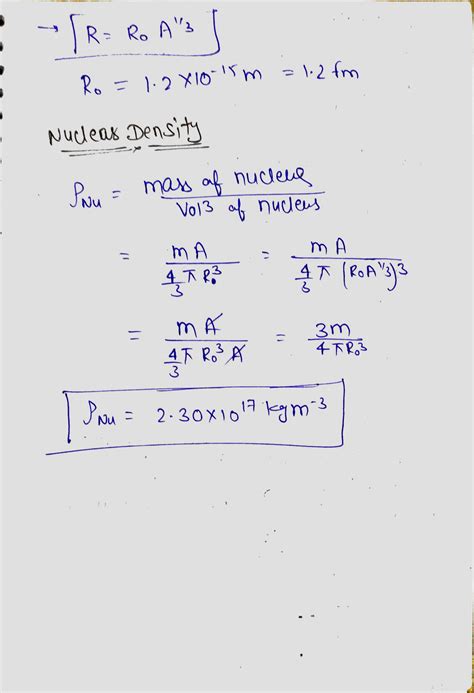 → [R = R₀ A^1/3]
R₀ = 1.2 × 10^-15 m = 1.2 fm
Nucleas Density
ρNu = mass of nucleus / Vol3 of nucleus
= mA / (4/3 π R₀^3) = mA / (4/3 π (R₀A^1/3)^3)
= mA / (4/3 π R₀^3 A) = 3m / 4πR₀^3
ρNu = 2.30×10^17 kgm^-3